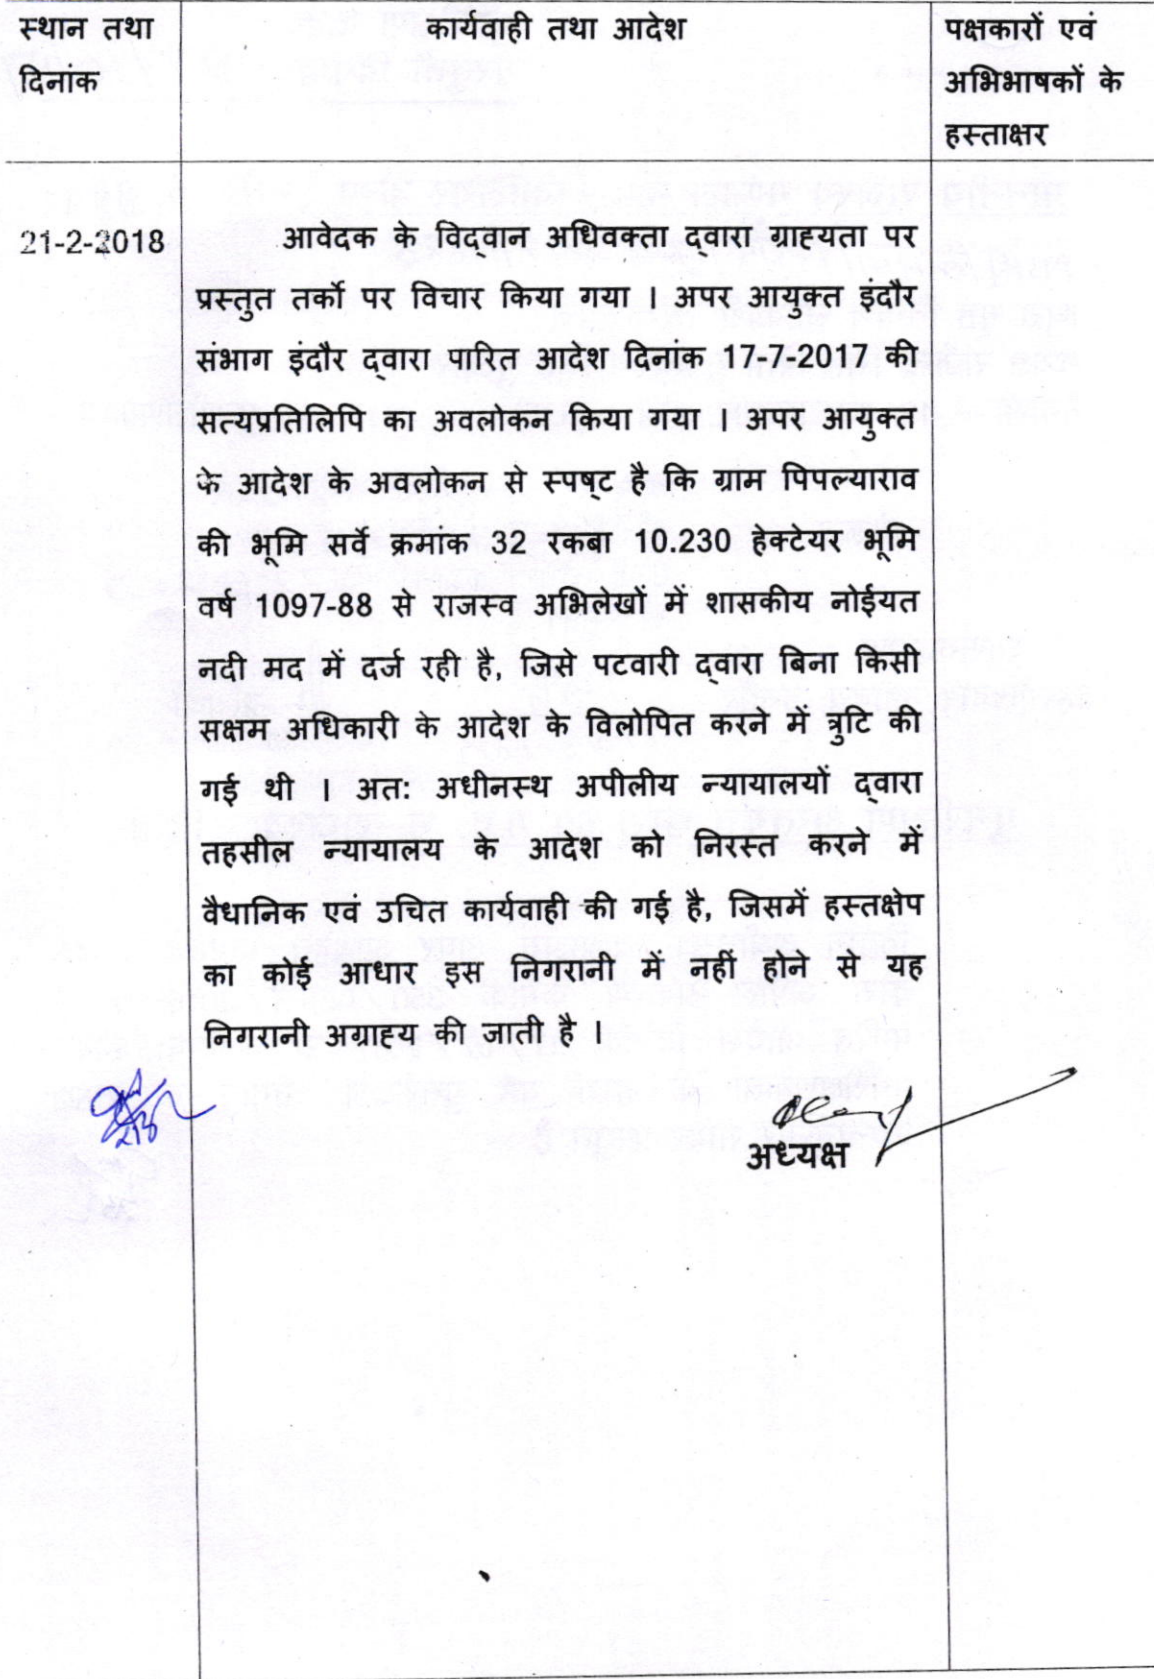 स्थान तथा
दिनांक
कार्यवाही तथा आदेश
पक्षकारों एवं
अभिभाषकों के
हस्ताक्षर
21-2-2018
आवेदक के विद्वान अधिवक्ता द्वारा ग्राह्यता पर
प्रस्तुत तर्को पर विचार किया गया । अपर आयुक्त इंदौर
संभाग इंदौर द्वारा पारित आदेश दिनांक 17-7-2017 की
सत्यप्रतिलिपि का अवलोकन किया गया । अपर आयुक्त
के आदेश के अवलोकन से स्पष्ट है कि ग्राम पिपल्याराव
की भूमि सर्वे क्रमांक 32 रकबा 10.230 हेक्टेयर भूमि
वर्ष 1097-88 से राजस्व अभिलेखों में शासकीय नोईयत
नदी मद में दर्ज रही है, जिसे पटवारी द्वारा बिना किसी
सक्षम अधिकारी के आदेश के विलोपित करने में त्रुटि की
गई थी । अत: अधीनस्थ अपीलीय न्यायालयों द्वारा
तहसील न्यायालय के आदेश को निरस्त करने में
वैधानिक एवं उचित कार्यवाही की गई है, जिसमें हस्तक्षेप
का कोई आधार इस निगरानी में नहीं होने से यह
निगरानी अग्राह्य की जाती है ।
अध्यक्ष